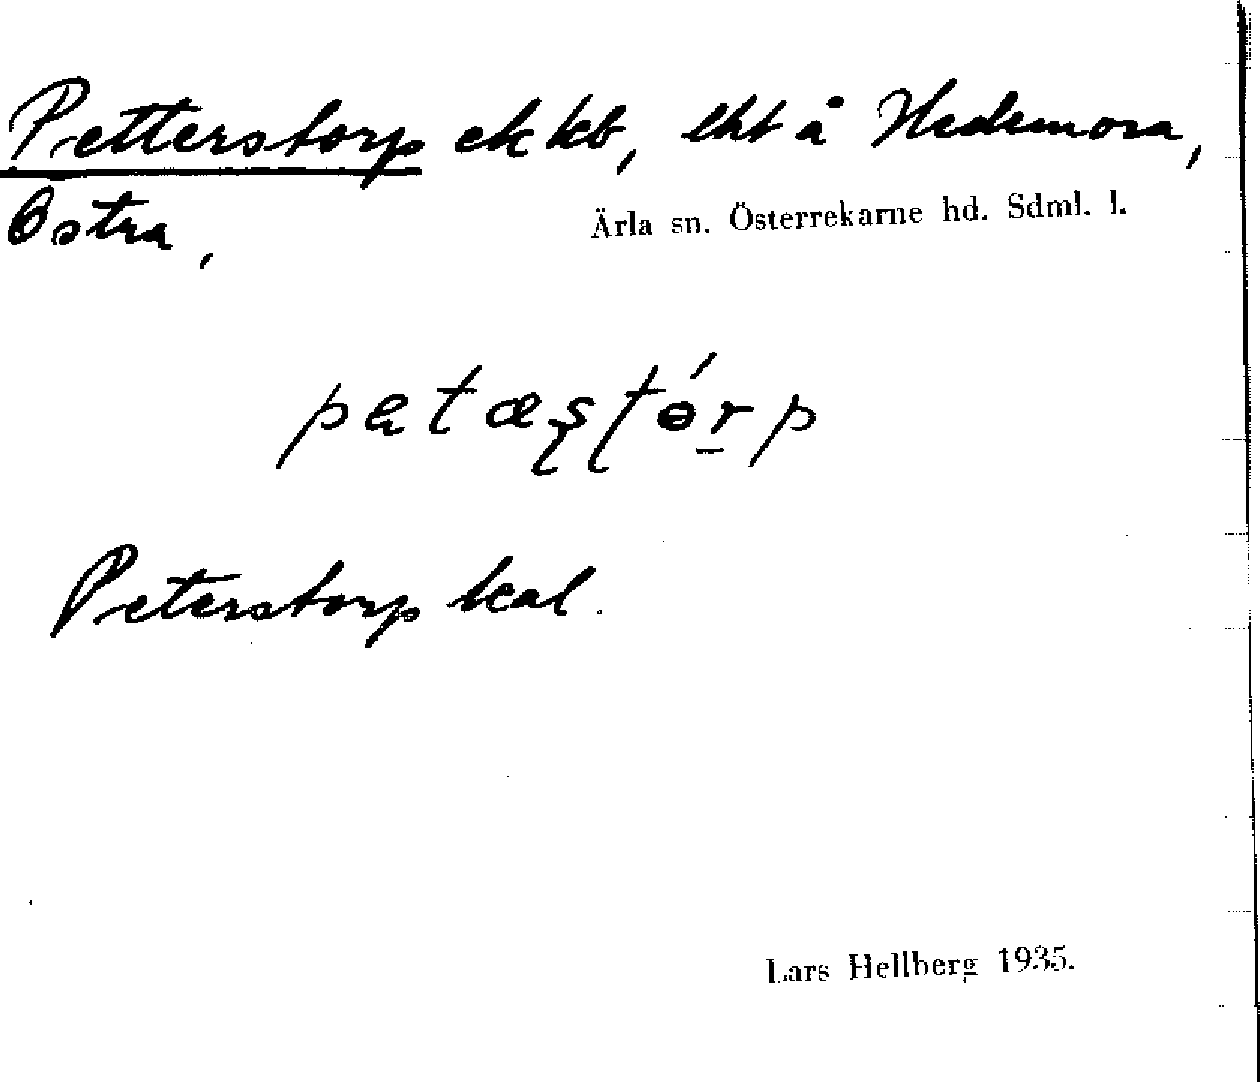 Petterstorp ek kb, lht å Hedemora,
Östra,
Ärla sn. Österrekarne hd. Sdml. l.
Peterstorp kal.
Lars Hellberg 1935.